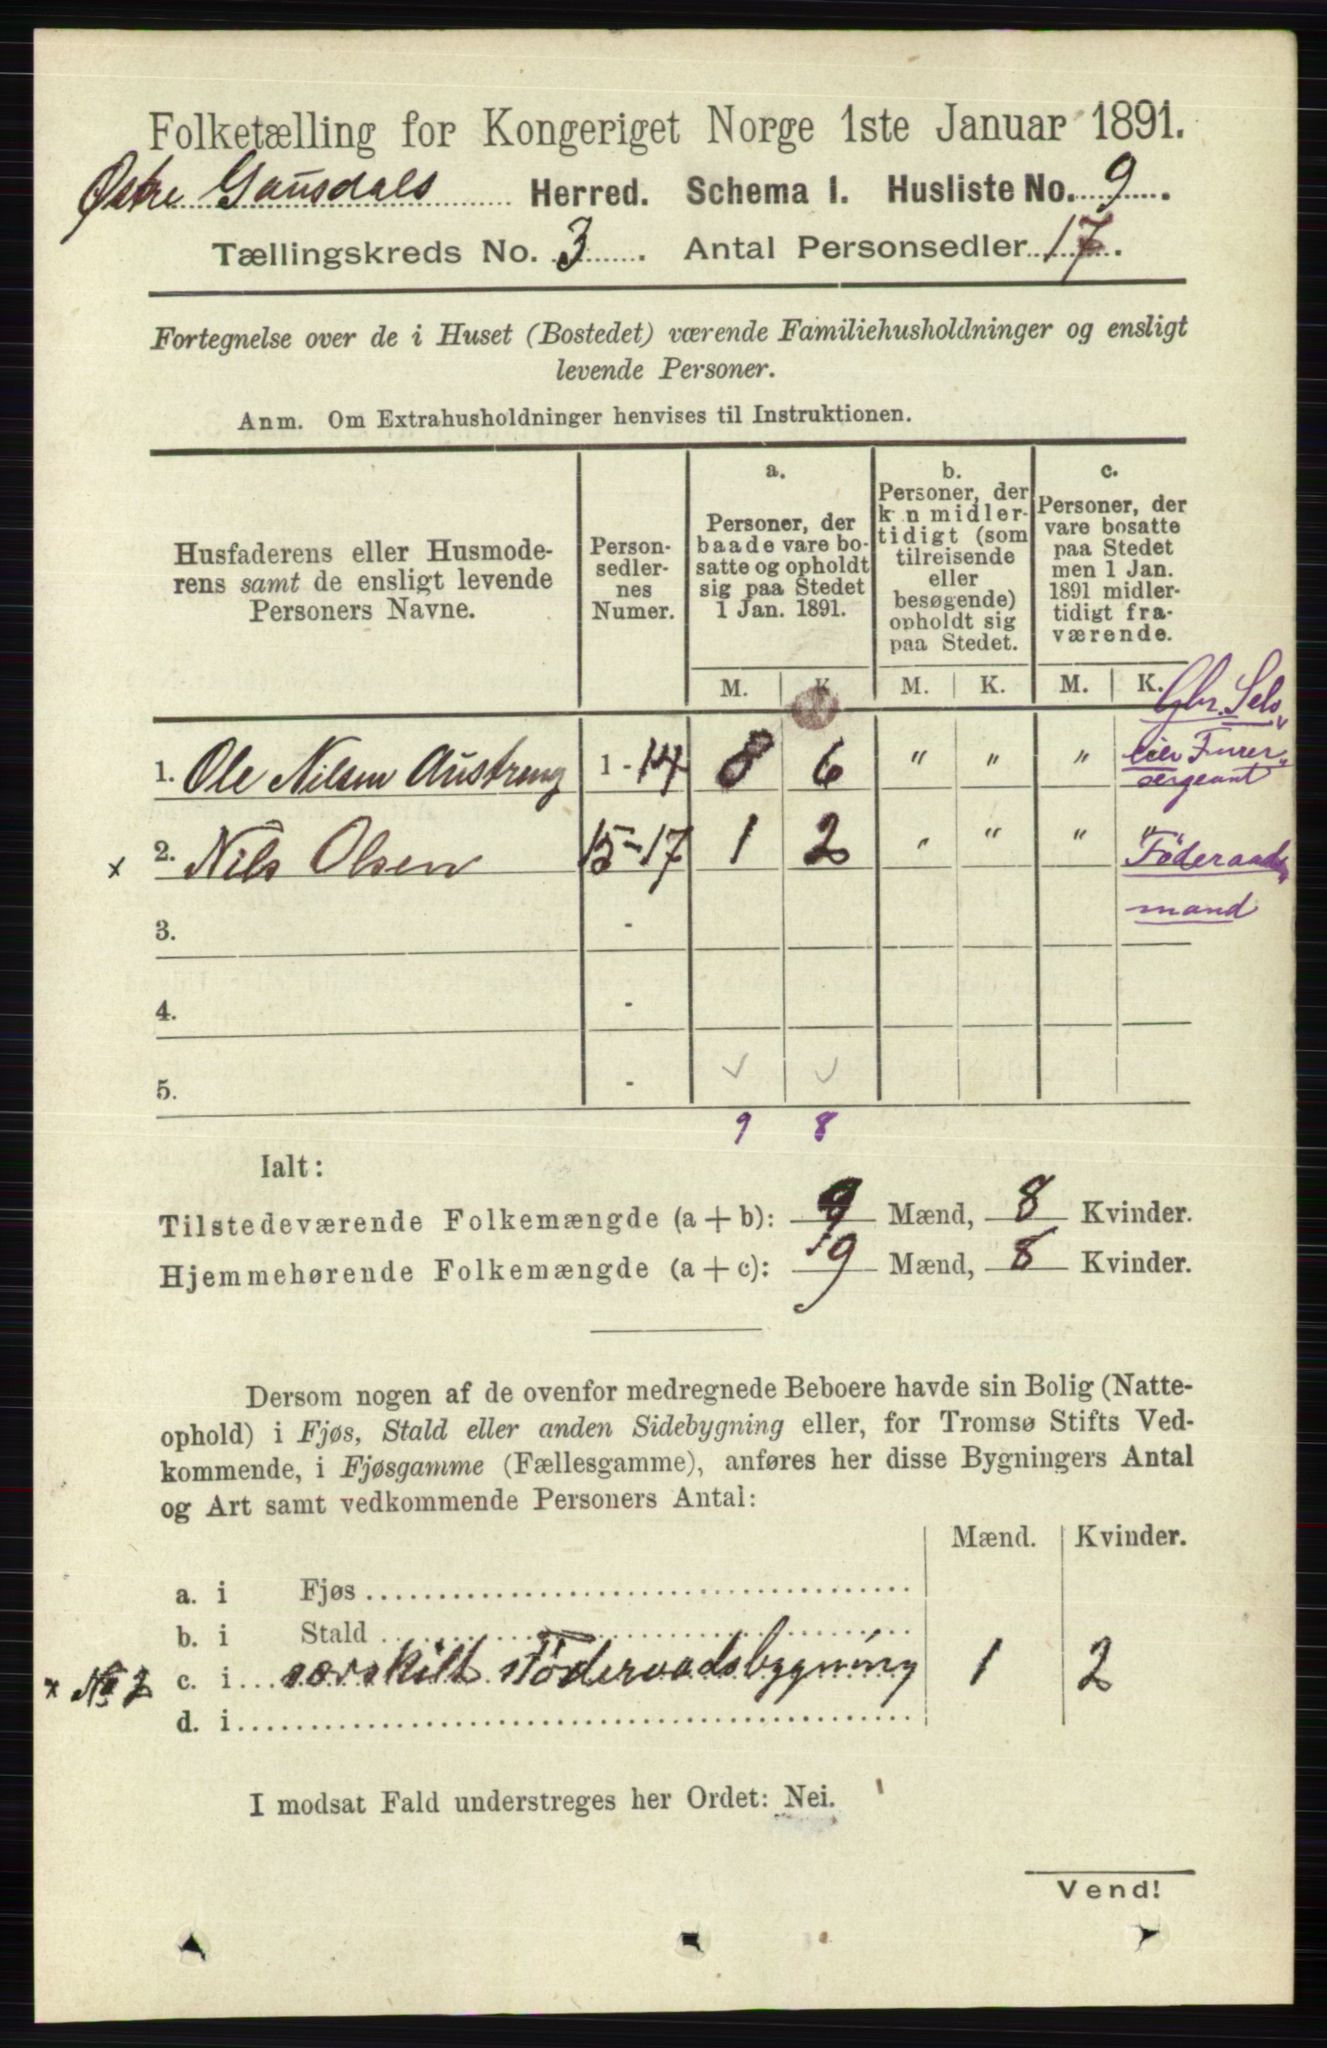 Folketælling for Kongeriget Norge 1ste Januar 1891.
Østre Gausdals Herred. Schema 1. Husliste No. 9.
Tællingskreds No. 3. Antal Personsedler 17.
Fortegnelse over de i Huset (Bostedet) værende Familiehusholdninger og ensligt
levende Personer.
Anm. Om Extrahusholdninger henvises til Instruktionen.
Husfaderens eller Husmode-
rens samt de ensligt levende
Personers Navne.
Person-
sedler-
nes
Numer.
a.
Personer, der
baade vare bo-
satte og opholdt
sig paa Stedet
1 Jan. 1891.
b.
Personer, der
k n midler-
tidigt (som
tilreisende
eller
besøgende)
opholdt sig
paa Stedet.
c.
Personer, der
vare bosatte
paa Stedet
men 1 Jan.
1891 midler-
tidigt fra-
værende.
M. K. M. K. M. K.
Gbr. Sels
1. Ole Nilsen Austreng 1-14 8 6 " " "
sergeant
2. Nils Olsen 15-17 1 2 " " " "
x
Føderaads
mand
3. -
4. -
5. -
9 8
Ialt:
Tilstedeværende Folkemængde (a + b): 9 Mænd, 8 Kvinder.
Hjemmehørende Folkemængde (a + c): 9 Mænd, 8 Kvinder.
Dersom nogen af de ovenfor medregnede Beboere havde sin Bolig (Natte-
ophold) i Fjøs, Stald eller anden Sidebygning eller, for Tromsø Stifts Ved-
kommende, i Fjøsgamme (Fællesgamme), anføres her disse Bygningers Antal
og Art samt vedkommende Personers Antal:
Mænd. Kvinder.
a. i Fjøs
b. i Stald
x No 2 c. i særskilt Föderaadsbygning 1 2
d. i
I modsat Fald understreges her Ordet: Nei.
Vend!